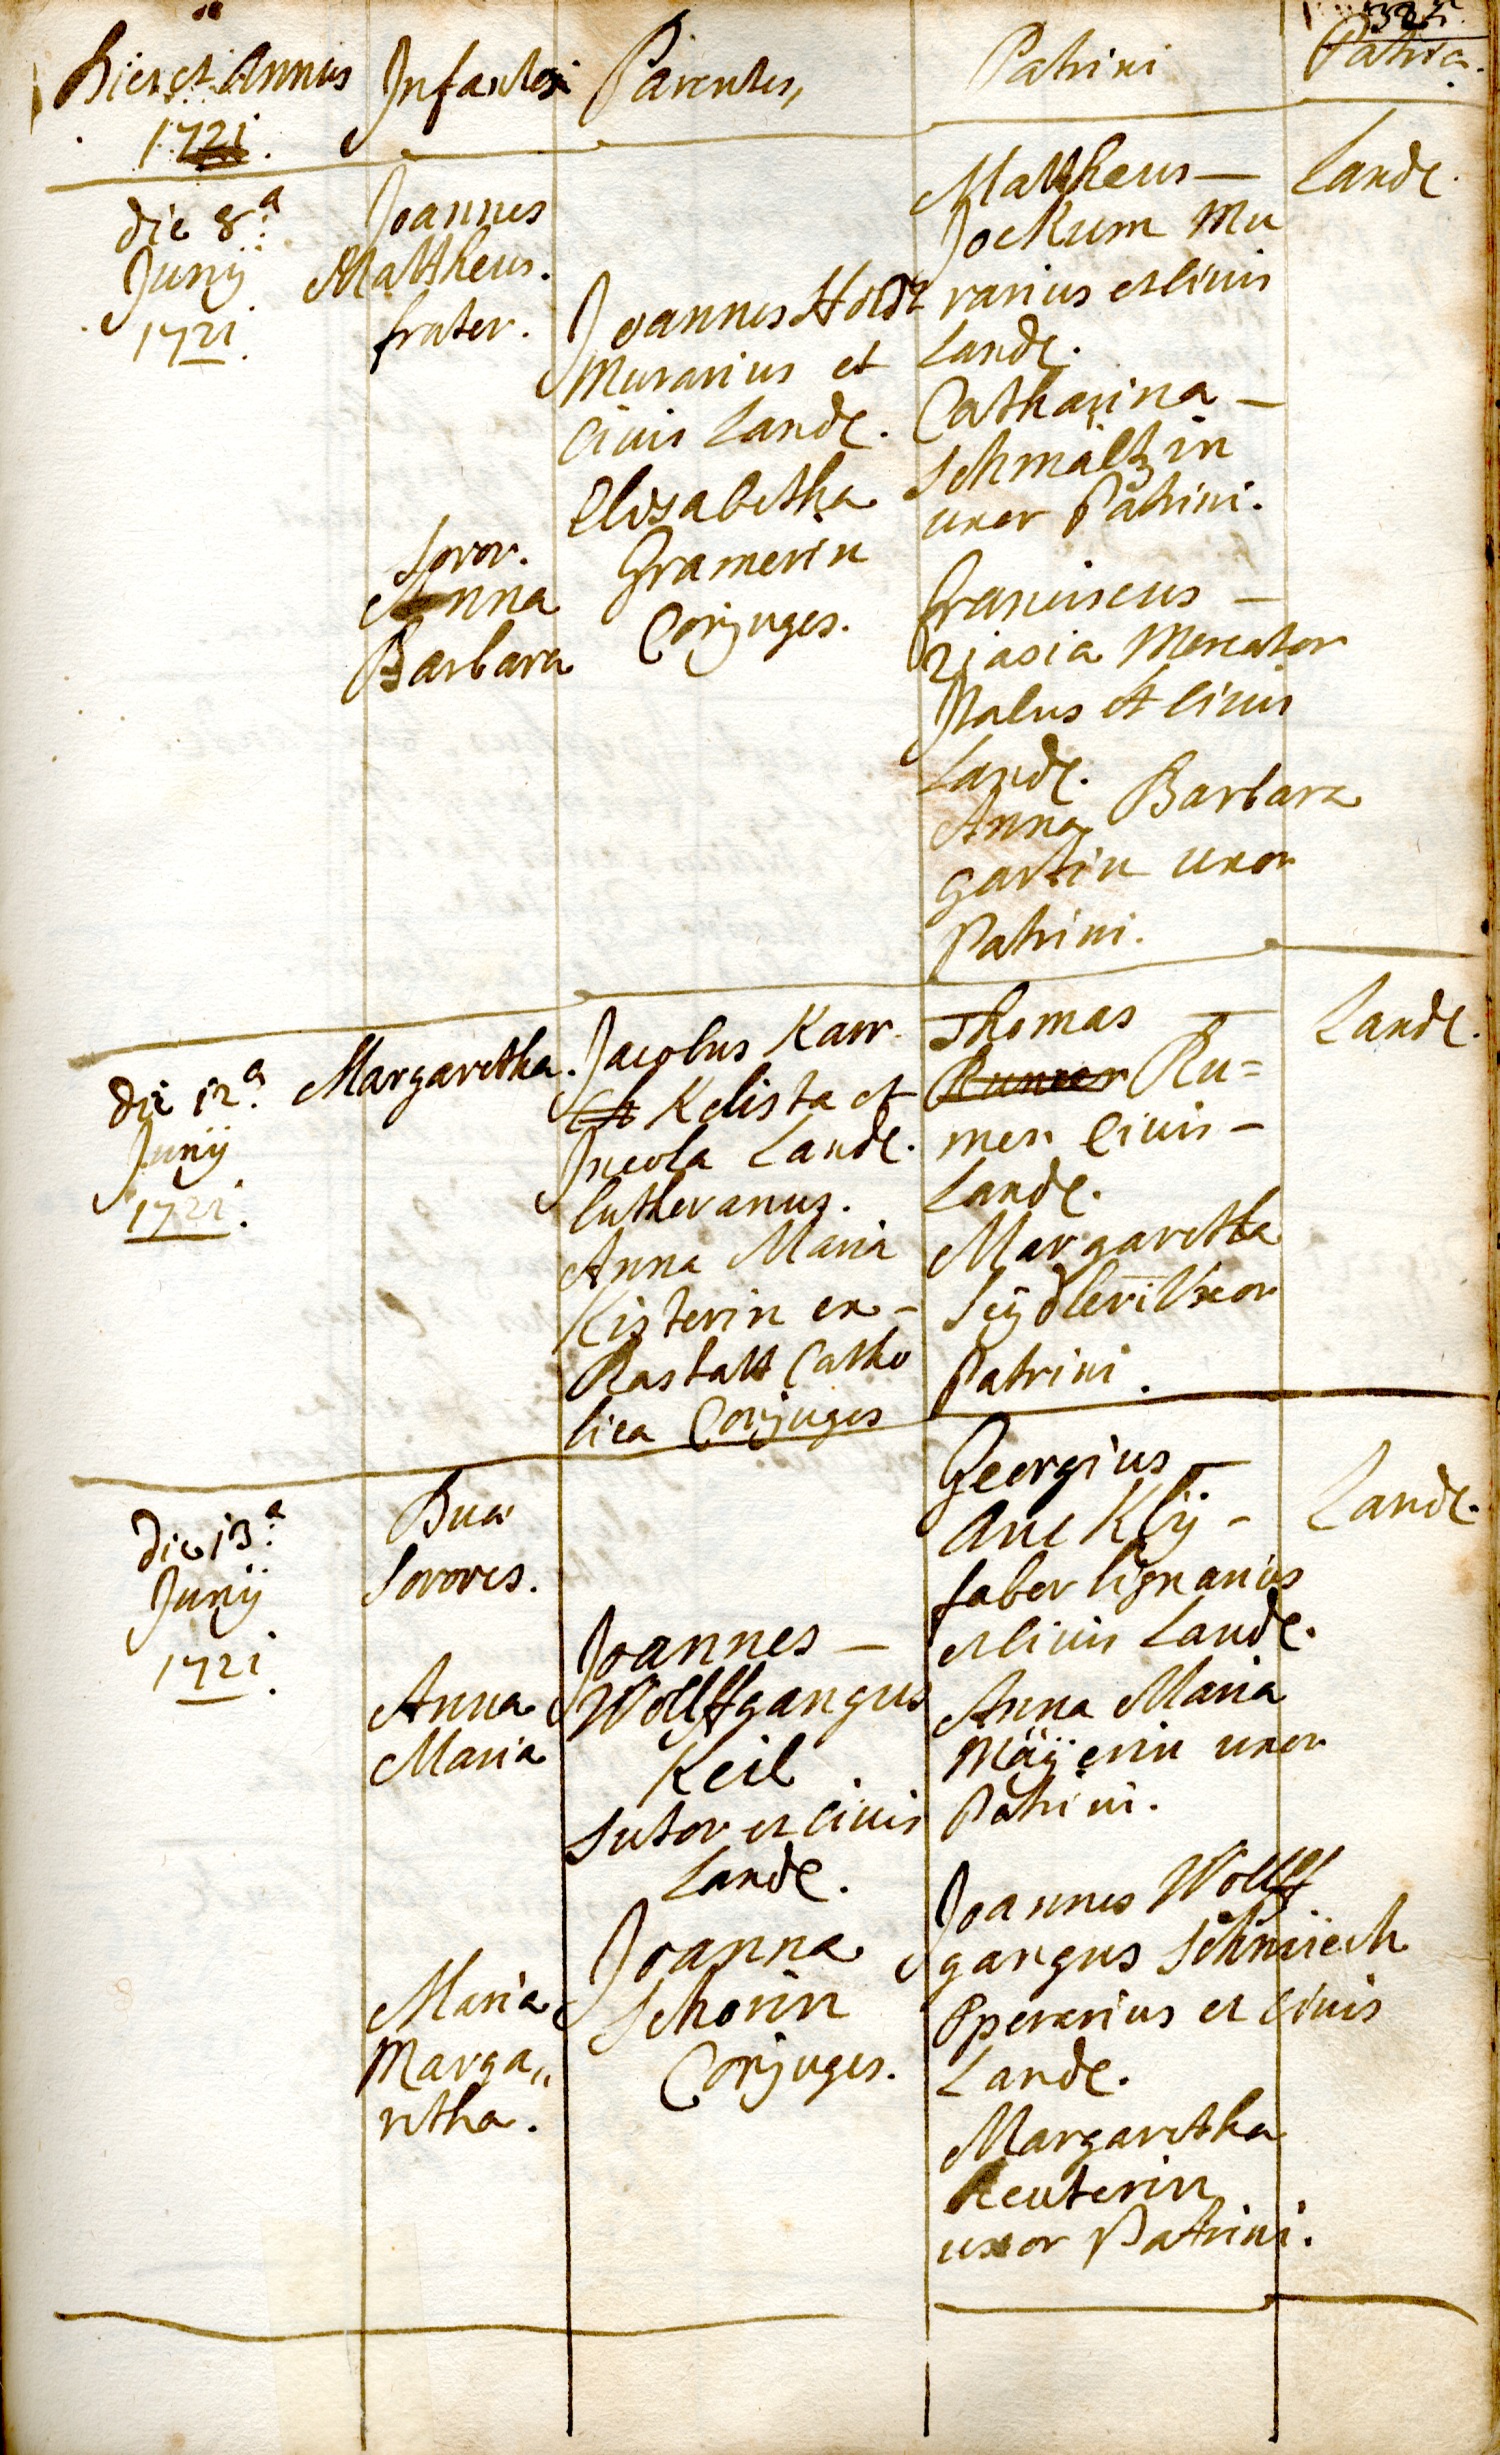 Dies et Annus
1721.
Infantes
Parentes,
Patrini
Patria.
die 8.a
Junÿ
1721.
Joannes
Mattheus.
frater.
Soror.
Anna
Barbara
Joannes
Murarius et
Civis Landę.
Elisabetha
Gramerin
Conjuges.
Mattheus —
Jockum Mu
rarius et Civis
Landę.
Catharina —
Schmältzin
uxor Patrini.
Franciscus —
Mercator
Italus et Civis
Landę.
Anna Barbara
gartin uxor
Patrini.
Landę.
die 12.a
Junÿ
1721.
Margaretha.
Jacobus Kaur
Kelista et
Incola Landę.
lutheranus.
Anna Maria
Kisterin ex –
Rastatt Catho
lica Conjuges
Thomas —
Ru=
mer Civis –
Landę.
Margaretha
Seÿdleri Uxor
Patrini.
Landę.
die 13.a
Junÿ
1721.
Duæ
Sorores.
Anna
Maria
Maria
Marga„
retha.
Joannes —
Wolffgangus
Keil
Sutor et Civis
Landę.
Joanna
Schorin
Conjuges.
Georgius —
Ane Klÿ –
faber lignarius
et Civis Landę.
Anna Maria
Mäÿerin uxor
Patrini.
Joannes Wolff
gangus Schmiech
Operarius et Civis
Landę.
Margaretha
Reuterin
uxor Patrini.
Landę.